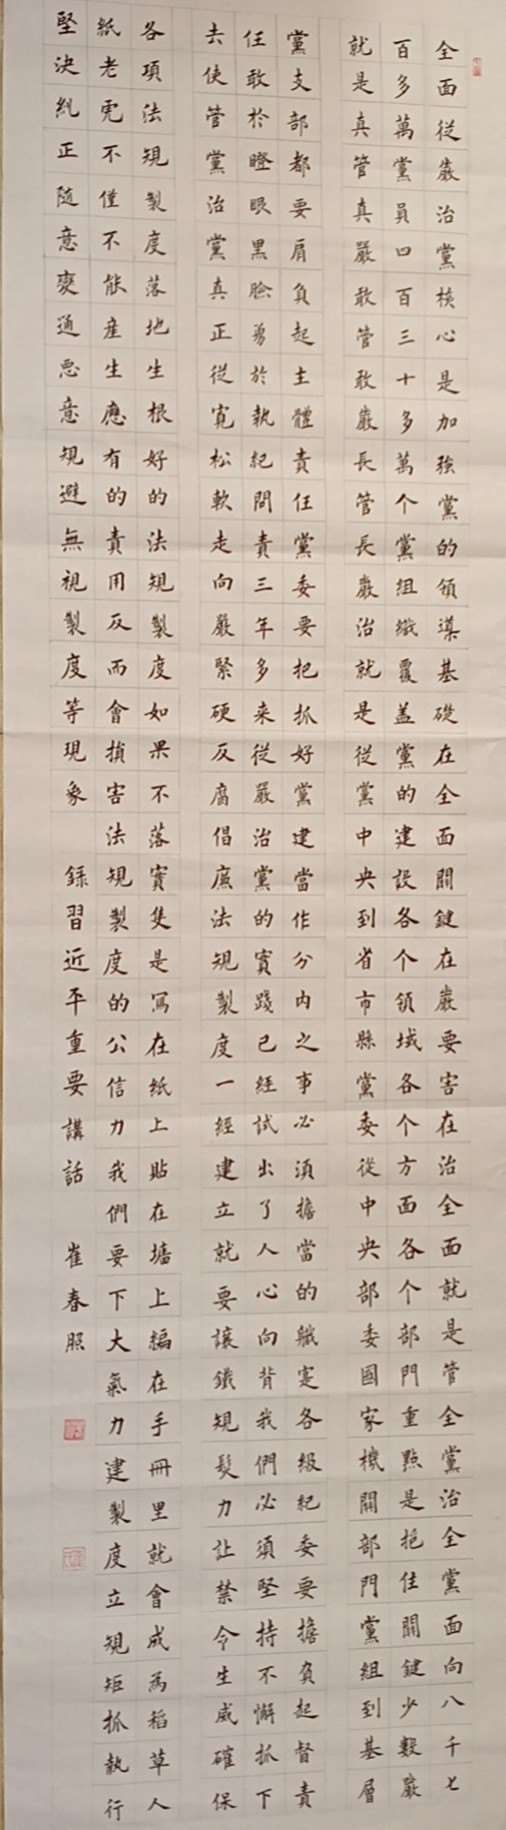 全面從嚴治黨核心是加強黨的領導基礎在全面關鍵在嚴要害在治全面就是管全黨治全黨面向八千七
百多萬黨員四百三十多萬个黨組織覆盖黨的建設各个領域各个方面各个部門重點是抱住關鍵少數嚴
就是真管真嚴敢管敢嚴長管長嚴治就是從黨中央到省市縣黨委從中央部委國家機關部門黨組到基層
黨支部都要肩負起主體責任黨委要把抓好黨建當作分内之事必須擔當的職寔各級紀委要擔負起督責
任敢於瞪眼黑臉勇於執紀問責三年多来從嚴治黨的實踐已經試出了人心向背我們必須堅持不懈抓下
去使管黨治黨真正從寬松軟走向嚴緊硬反腐倡廉法規製度一經建立就要讓鐵規發力让禁令生威確保
各項法規製度落地生根好的法規製度如果不落實隻是寫在紙上貼在墻上編在手冊里就會成為稻草人
紙老虎不僅不能産生應有的責用反而會損害法規製度的公信力我們要下大氣力建製度立規矩抓執行
堅決糺正随意變通惡意規避無視製度等現象 錄習近平重要講話 崔春照